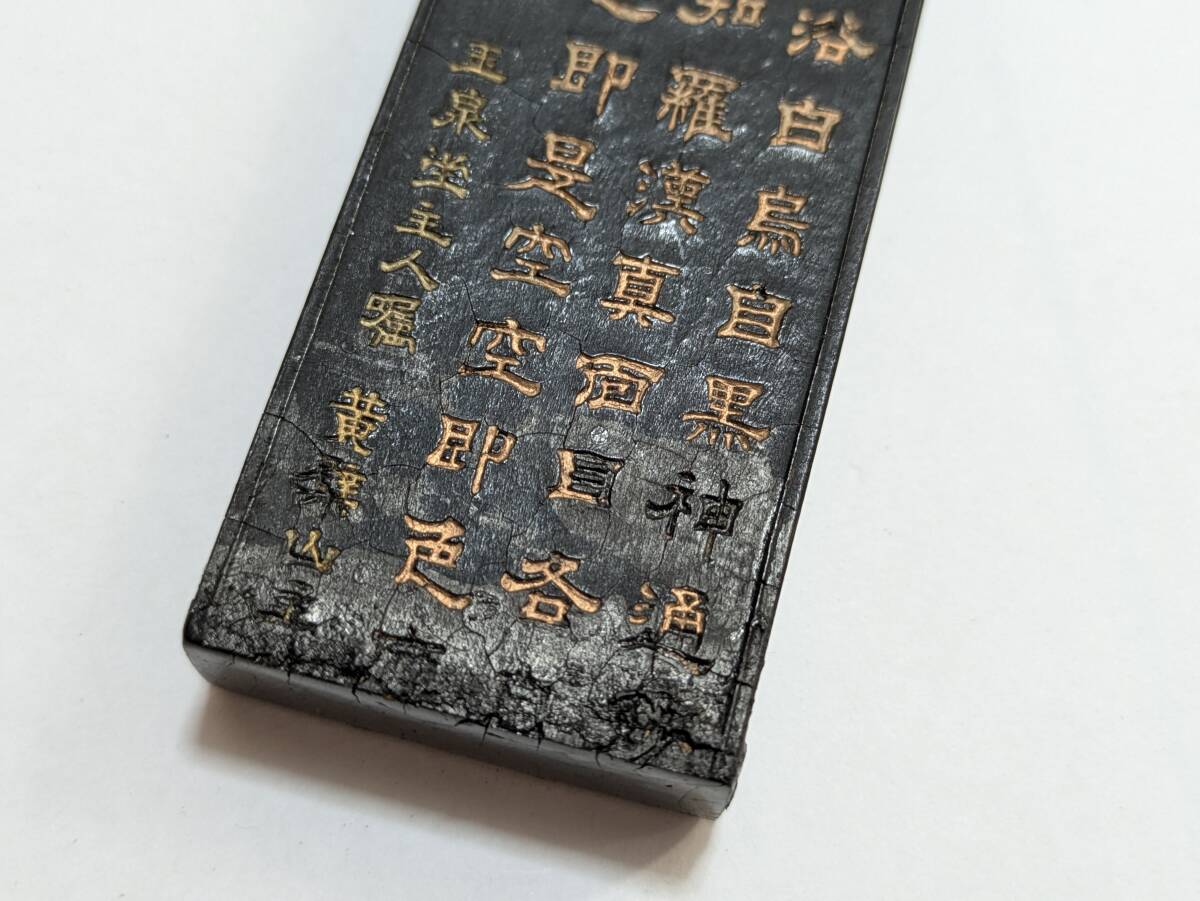 浴白烏自黑神通
知羅漢真面目各
即是空空即色
玉泉坐主人囑 黄蘗山主